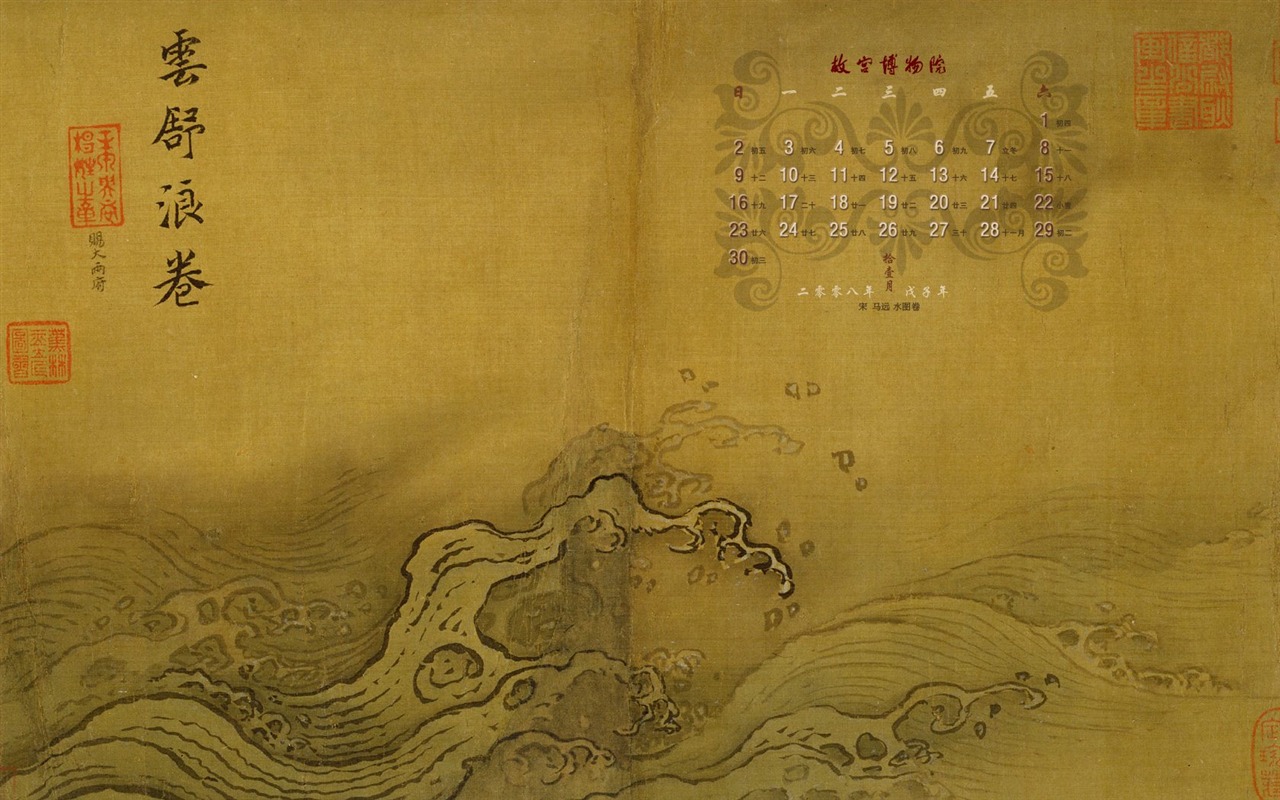 雲舒浪卷
賜大兩府
故宫博物院
日 一 二 三 四 五 六
1 初四
2 初五 3 初六 4 初七 5 初八 6 初九 7 立冬 8 十一
9 十二 10 十三 11 十四 12 十五 13 十六 14 十七 15 十八
16 十九 17 二十 18 廿一 19 廿二 20 廿三 21 廿四 22 小雪
23 廿六 24 廿七 25 廿八 26 廿九 27 三十 28 十一月 29 初二
30 初三
拾壹月
二零零八年 戊子年
宋 马远 水图卷